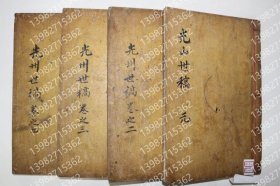 光山世稿 元
光州世稿 卷之二
光州世稿 卷之三
光州世稿 卷之四
13982715362
13982715362
13982715362
13982715362
13982715362
13982715362